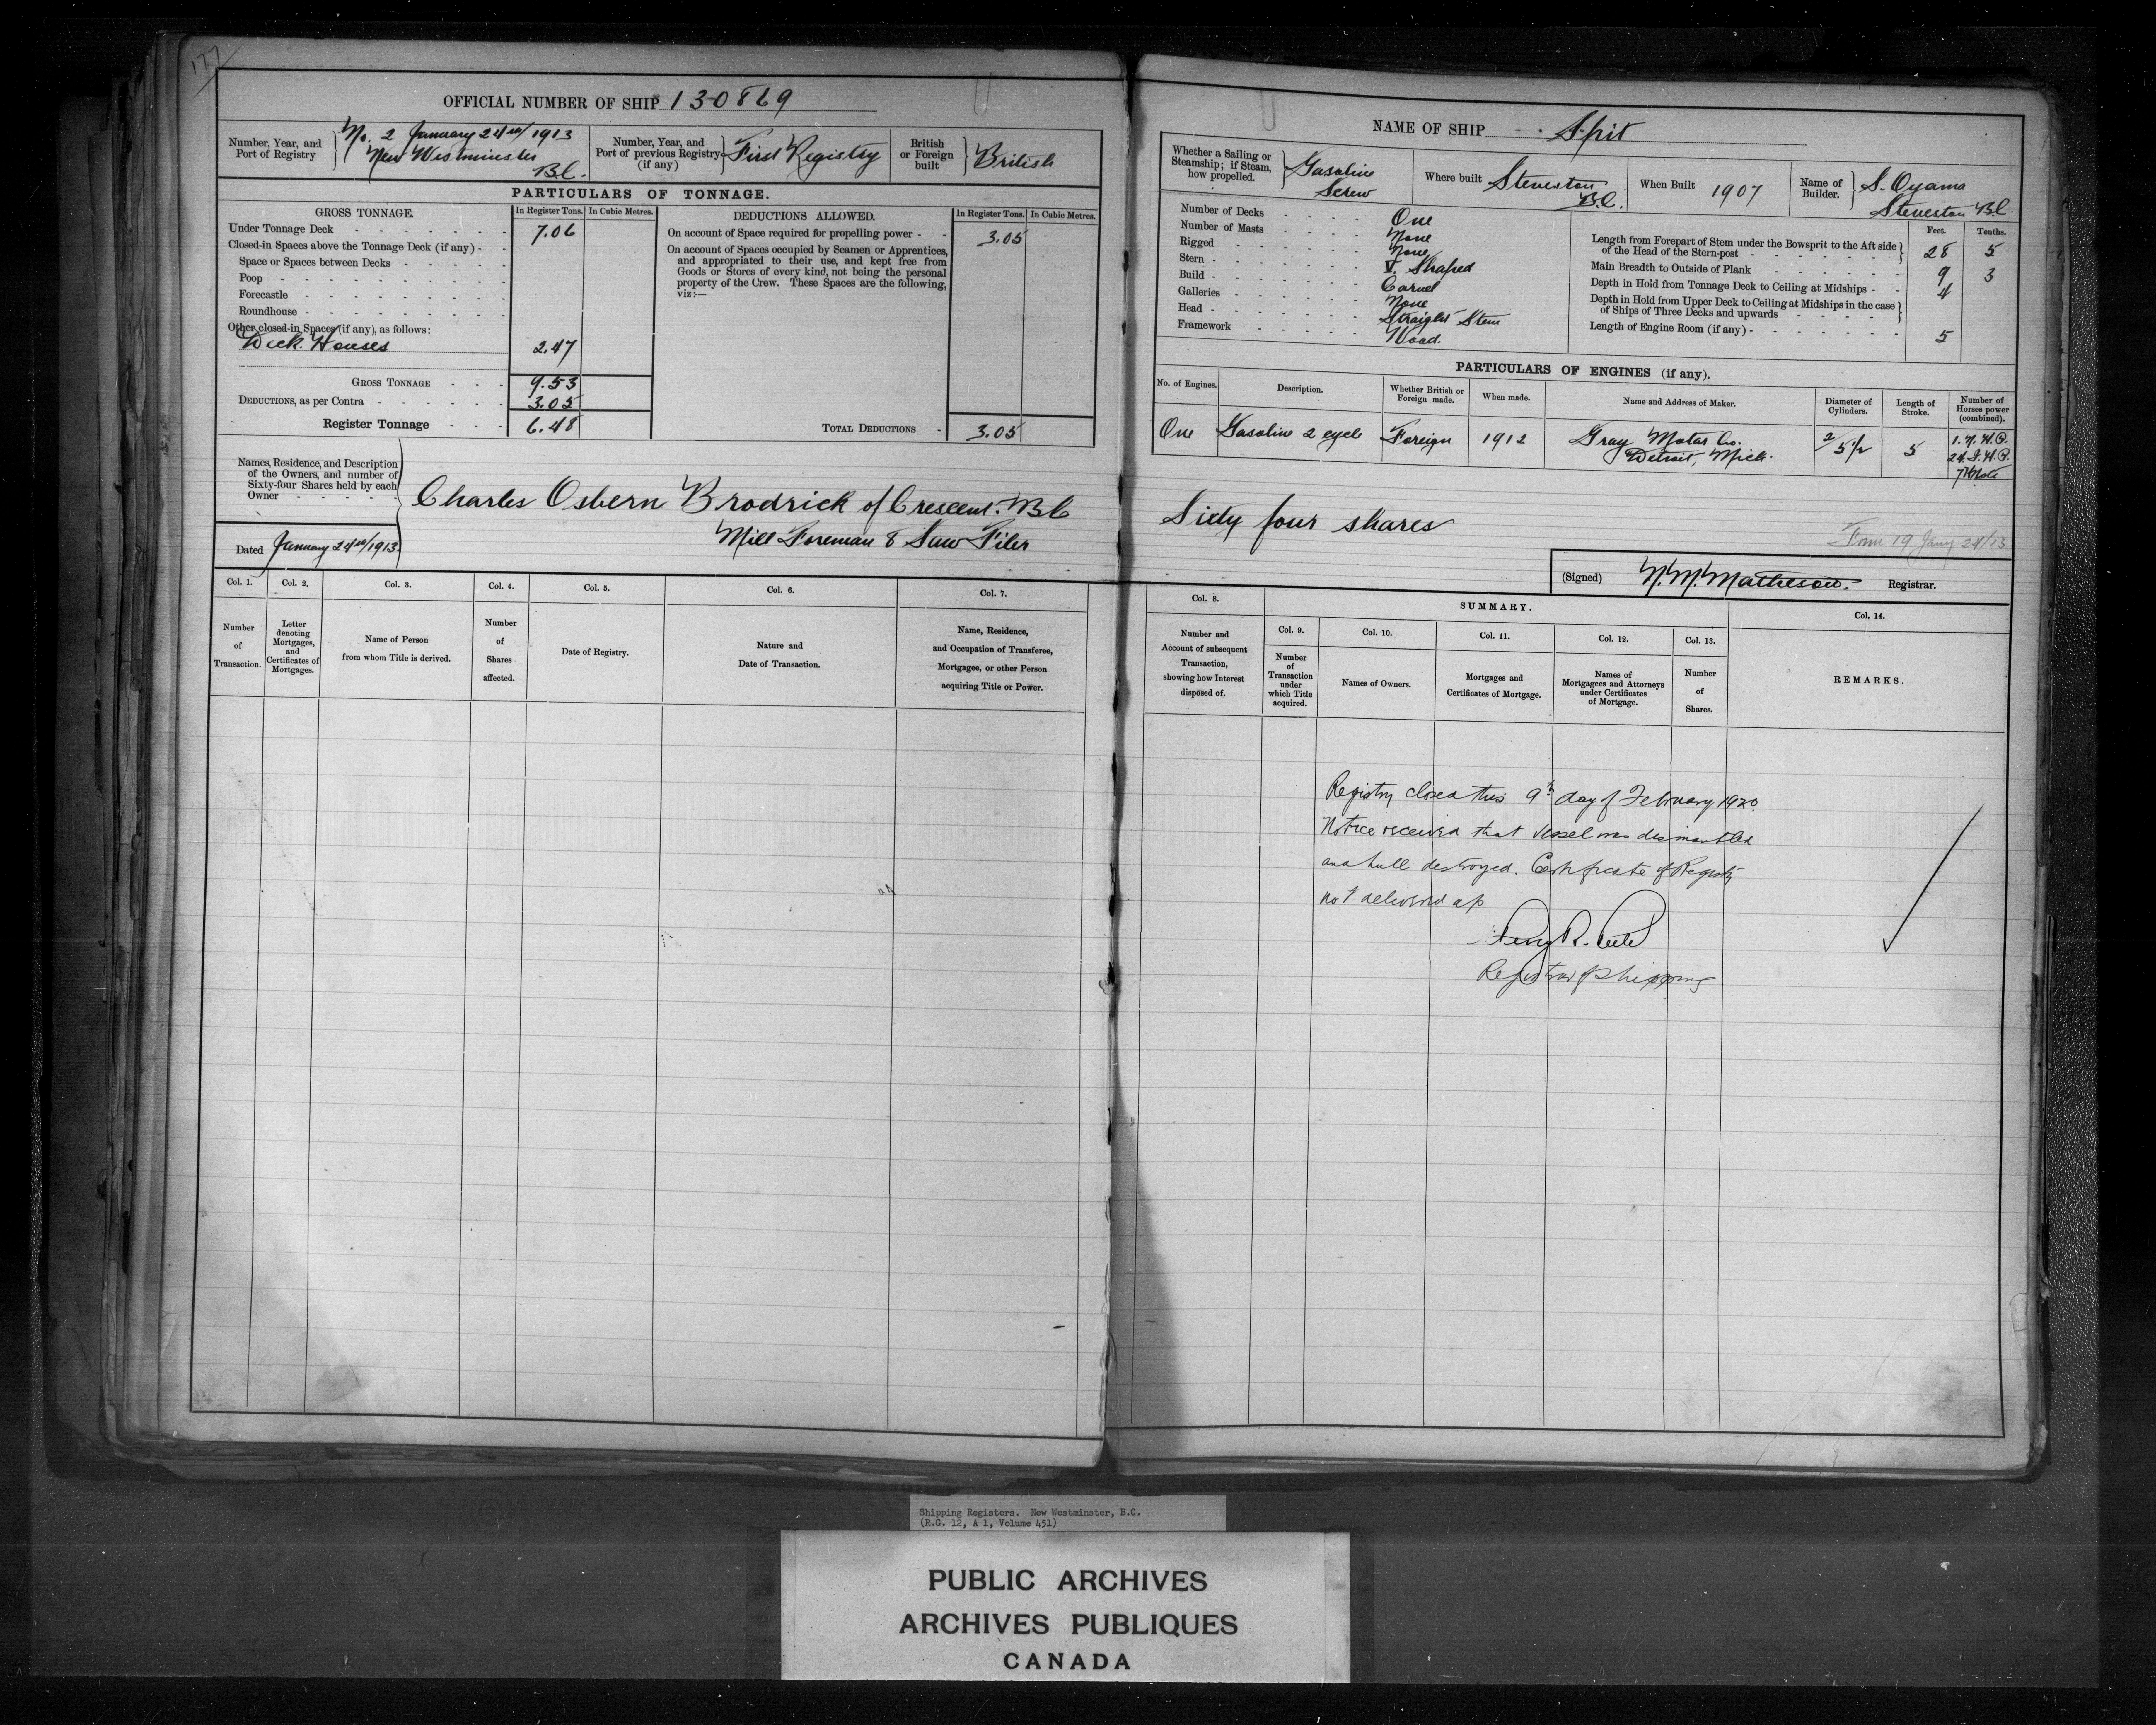 177
OFFICIAL NUMBER OF SHIP 130869
Number, Year, and Port of Registry
No. 2 January 24th/1913
New Westminster
B.C.
Number, Year, and Port of previous Registry (if any)
First Registry
British or Foreign built
British
PARTICULARS OF TONNAGE.
GROSS TONNAGE. In Register Tons. In Cubic Metres.
Under Tonnage Deck 7.06
Closed-in Spaces above the Tonnage Deck (if any)
Space or Spaces between Decks
Poop
Forecastle
Roundhouse
Other closed-in Spaces (if any), as follows:
Deck Houses 2.47
GROSS TONNAGE 9.53
DEDUCTIONS, as per Contra 3.05
Register Tonnage 6.48
DEDUCTIONS ALLOWED. In Register Tons. In Cubic Metres.
On account of Space required for propelling power 3.05
On account of Spaces occupied by Seamen or Apprentices,
and appropriated to their use, and kept free from
Goods or Stores of every kind, not being the personal
property of the Crew. These Spaces are the following,
viz:—
TOTAL DEDUCTIONS 3.05
Names, Residence, and Description
of the Owners, and number of
Sixty-four Shares held by each
Owner
Charles Osbern Brodrick of Crescent. B C
Mill Foreman & Saw Filer
Dated January 24th/1913
Col. 1. Col. 2. Col. 3. Col. 4. Col. 5. Col. 6. Col. 7.
Number of Transaction.
Letter denoting Mortgages, and Certificates of Mortgages.
Name of Person from whom Title is derived.
Number of Shares affected.
Date of Registry.
Nature and Date of Transaction.
Name, Residence, and Occupation of Transferee, Mortgagee, or other Person acquiring Title or Power.
NAME OF SHIP Spit
Whether a Sailing or Steamship; if Steam, how propelled.
Gasoline
Screw
Where built Steveston
B.C.
When Built 1907
Name of Builder.
S. Oyama
Steveston B.C.
Number of Decks One
Number of Masts None
Rigged None
Stern V. Shaped
Build Carvel
Galleries None
Head Straight Stem
Framework Wood.
Feet. Tenths.
Length from Forepart of Stem under the Bowsprit to the Aft side
of the Head of the Stern-post 28 5
Main Breadth to Outside of Plank 9 3
Depth in Hold from Tonnage Deck to Ceiling at Midships 4
Depth in Hold from Upper Deck to Ceiling at Midships in the case
of Ships of Three Decks and upwards
Length of Engine Room (if any) 5
PARTICULARS OF ENGINES (if any).
No. of Engines. Description. Whether British or Foreign made. When made. Name and Address of Maker. Diameter of Cylinders. Length of Stroke. Number of Horses power (combined).
One Gasoline 2 cycle Foreign 1912 Gray Motor Co. 2/5 1/2 5 1. N. H. P.
Detroit, Mich. 24. I. H. P.
7 Knots
Sixty four shares
Form 19 Jany 24/13
(Signed) N. M. Matheson. Registrar.
Col. 8. SUMMARY. Col. 14.
Col. 9. Col. 10. Col. 11. Col. 12. Col. 13.
Number and Account of subsequent Transaction, showing how Interest disposed of.
Number of Transaction under which Title acquired.
Names of Owners.
Mortgages and Certificates of Mortgage.
Names of Mortgagees and Attorneys under Certificates of Mortgage.
Number of Shares.
REMARKS.
Registry closed this 9th day of February 1920.
Notice received that vessel was dismantled
and hull destroyed. Certificate of Registry
not delivered up
Registrar of Shipping
Shipping Registers. New Westminster, B.C.
(R.G. 12, A 1, Volume 451)
PUBLIC ARCHIVES
ARCHIVES PUBLIQUES
CANADA